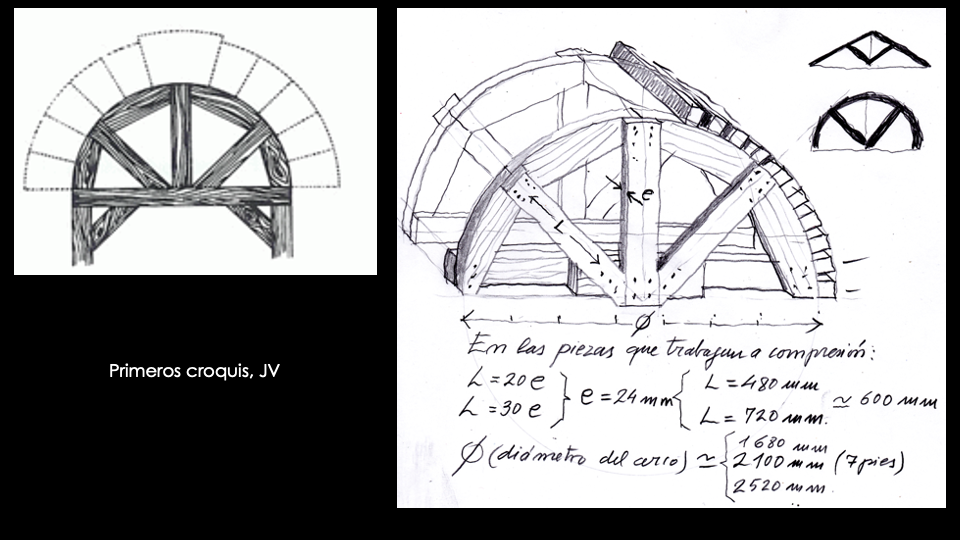 Primeros croquis, JV
e
L
Ø
En las piezas que trabajan a compresión:
L = 20 e
L = 30 e
e = 24 mm
L = 480 mm
L = 720 mm.
≃ 600 mm
Ø (diámetro del arco) ≃
1680 mm
2100 mm (7 pies)
2520 mm.